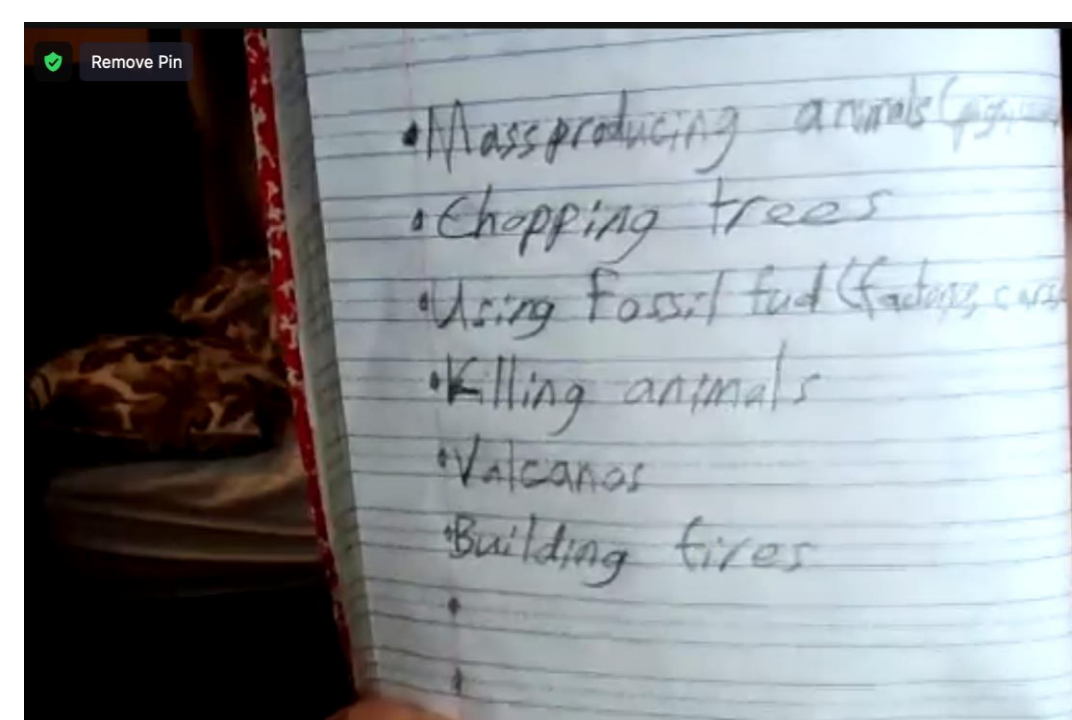 Remove Pin
• Mass producing animals (pigs,
• Chopping trees
• Using Fossil fuel (factorys, cars,
• Killing animals
• Valcanos
• Building fires
•
•